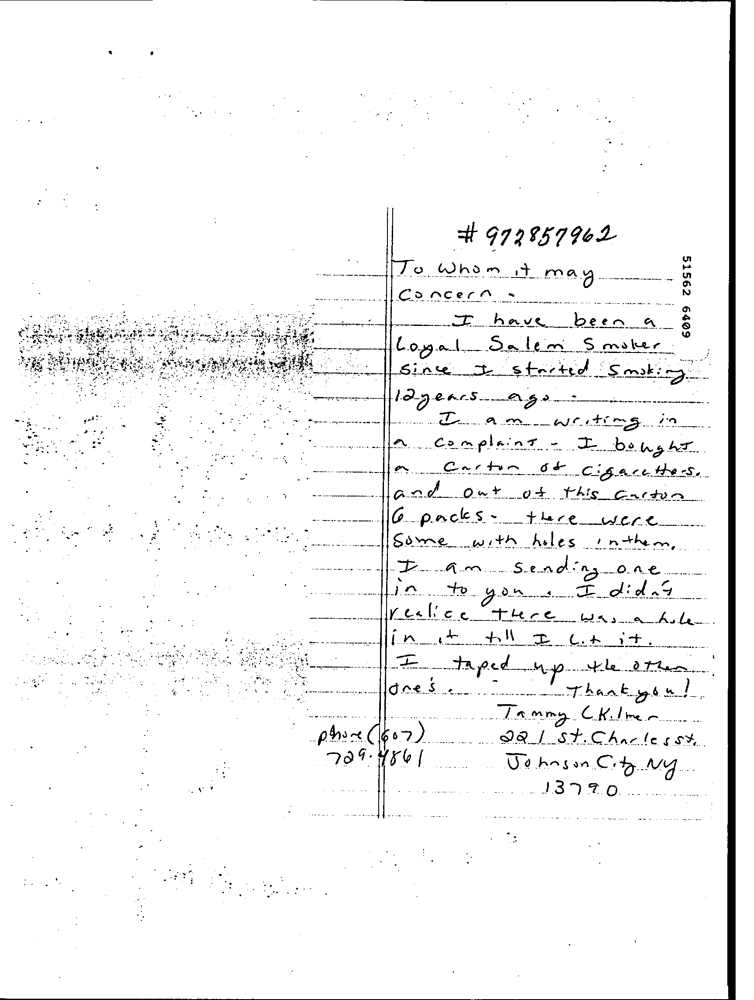 # 972857962
51562 6409
To Whom it may
Concern -
I have been a
Loyal Salem Smoker
since I started Smoking
12 years ago.
I am writing in
a complaint - I bought
a Carton of Cigarettes.
and out of this carton
6 packs - there were
Some with holes in them.
I am sending one
in to you. I didn't
realice there was a hole
in it till I Lit it.
I taped up the other
one's. Thank you!
Tammy C Kilmer
221 St. Charles st.
Johnson City NY
13790
phone (607)
729-4861